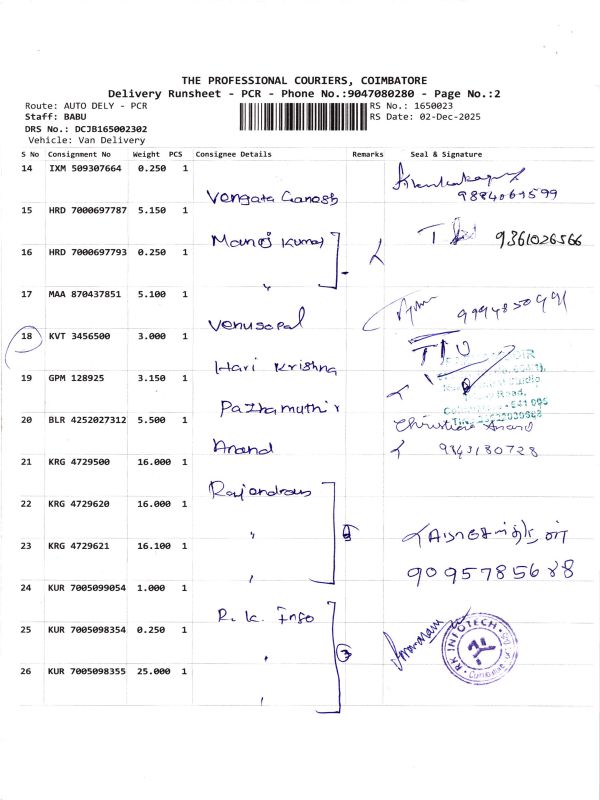 THE PROFESSIONAL COURIERS, COIMBATORE
Delivery Runsheet - PCR - Phone No.:9047080280 - Page No.:2
Route: AUTO DELY - PCR
RS No.: 1650023
Staff: BABU
RS Date: 02-Dec-2025
DRS No.: DCJB165002302
Vehicle: Van Delivery
S No Consignment No Weight PCS Consignee Details Remarks Seal & Signature
14 IXM 509307664 0.250 1 Vengata Ganesh 9884061599
15 HRD 7000697787 5.150 1 Manoj Kumar 9361026566
16 HRD 7000697793 0.250 1 "
17 MAA 870437851 5.100 1 Venugopal 9994850991
18 KVT 3456500 3.000 1 Hari Krishna
19 GPM 128925 3.150 1 Pazhamuthir
20 BLR 4252027312 5.500 1 Anand Christine Anand 9843180728
21 KRG 4729500 16.000 1 Rajendran
22 KRG 4729620 16.000 1 "
23 KRG 4729621 16.100 1 " 9095785688
24 KUR 7005099054 1.000 1 R.K. Info
25 KUR 7005098354 0.250 1 " 3 RK INFOTECH
26 KUR 7005098355 25.000 1 "